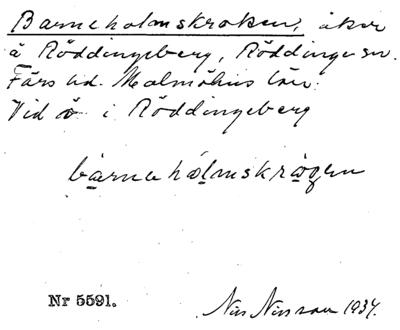 Barneholmskroken, åker
å Röddingeberg, Röddinge sn.
Färs hd. Malmöhus län.
Vid å i Röddingeberg
bàrnehólmskrågen
Nr 5591.
Nils Nilsson 1934.